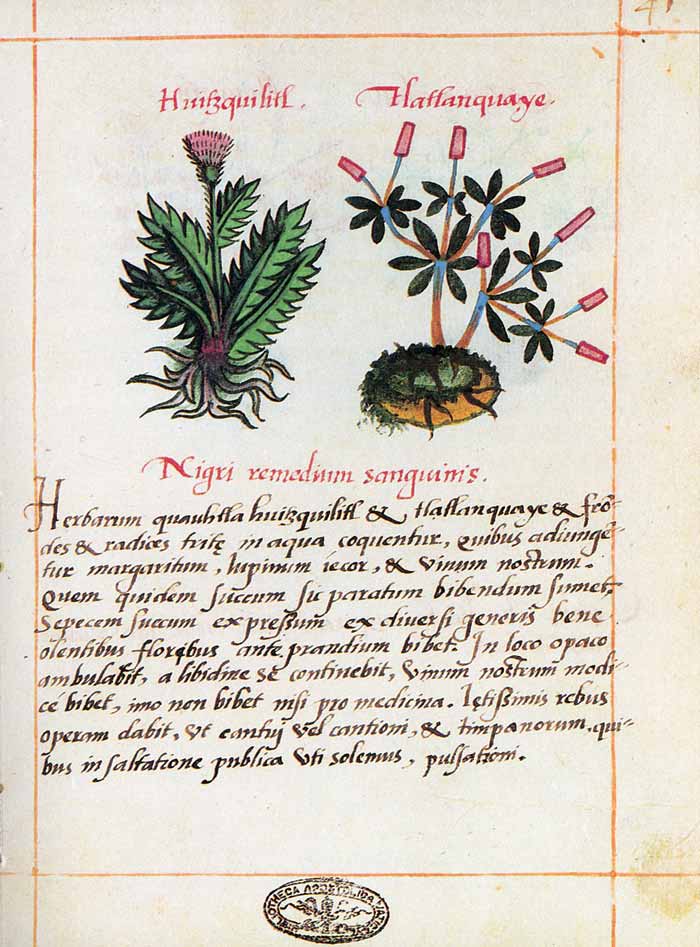 Huitzquilitl. Tlatlanquaye.
Nigri remedium sanguinis.
Herbarum quauhtla huitzquilitl & tlatlanquaye & frō-
des & radices tritę in aqua coquentur, quibus adiungē-
tur margaritum, lupinum iecor, & vinum nostrum.
Quem quidem succum sic paratum bibendum sumet.
Sepecem succum expressum ex diversi generis bene
olentibus floribus ante prandium bibet. In loco opaco
ambulabit, a libidine se continebit, vinum nostrum modi-
cé bibet, imo non bibet nisi pro medicina. Lętissimis rebus
operam dabit, vt cantui vel cantioni, & timpanorum, qui-
bus in saltatione publica vti solemus, pulsationi.
BIBLIOTHECA APOSTOLICA VATICANA